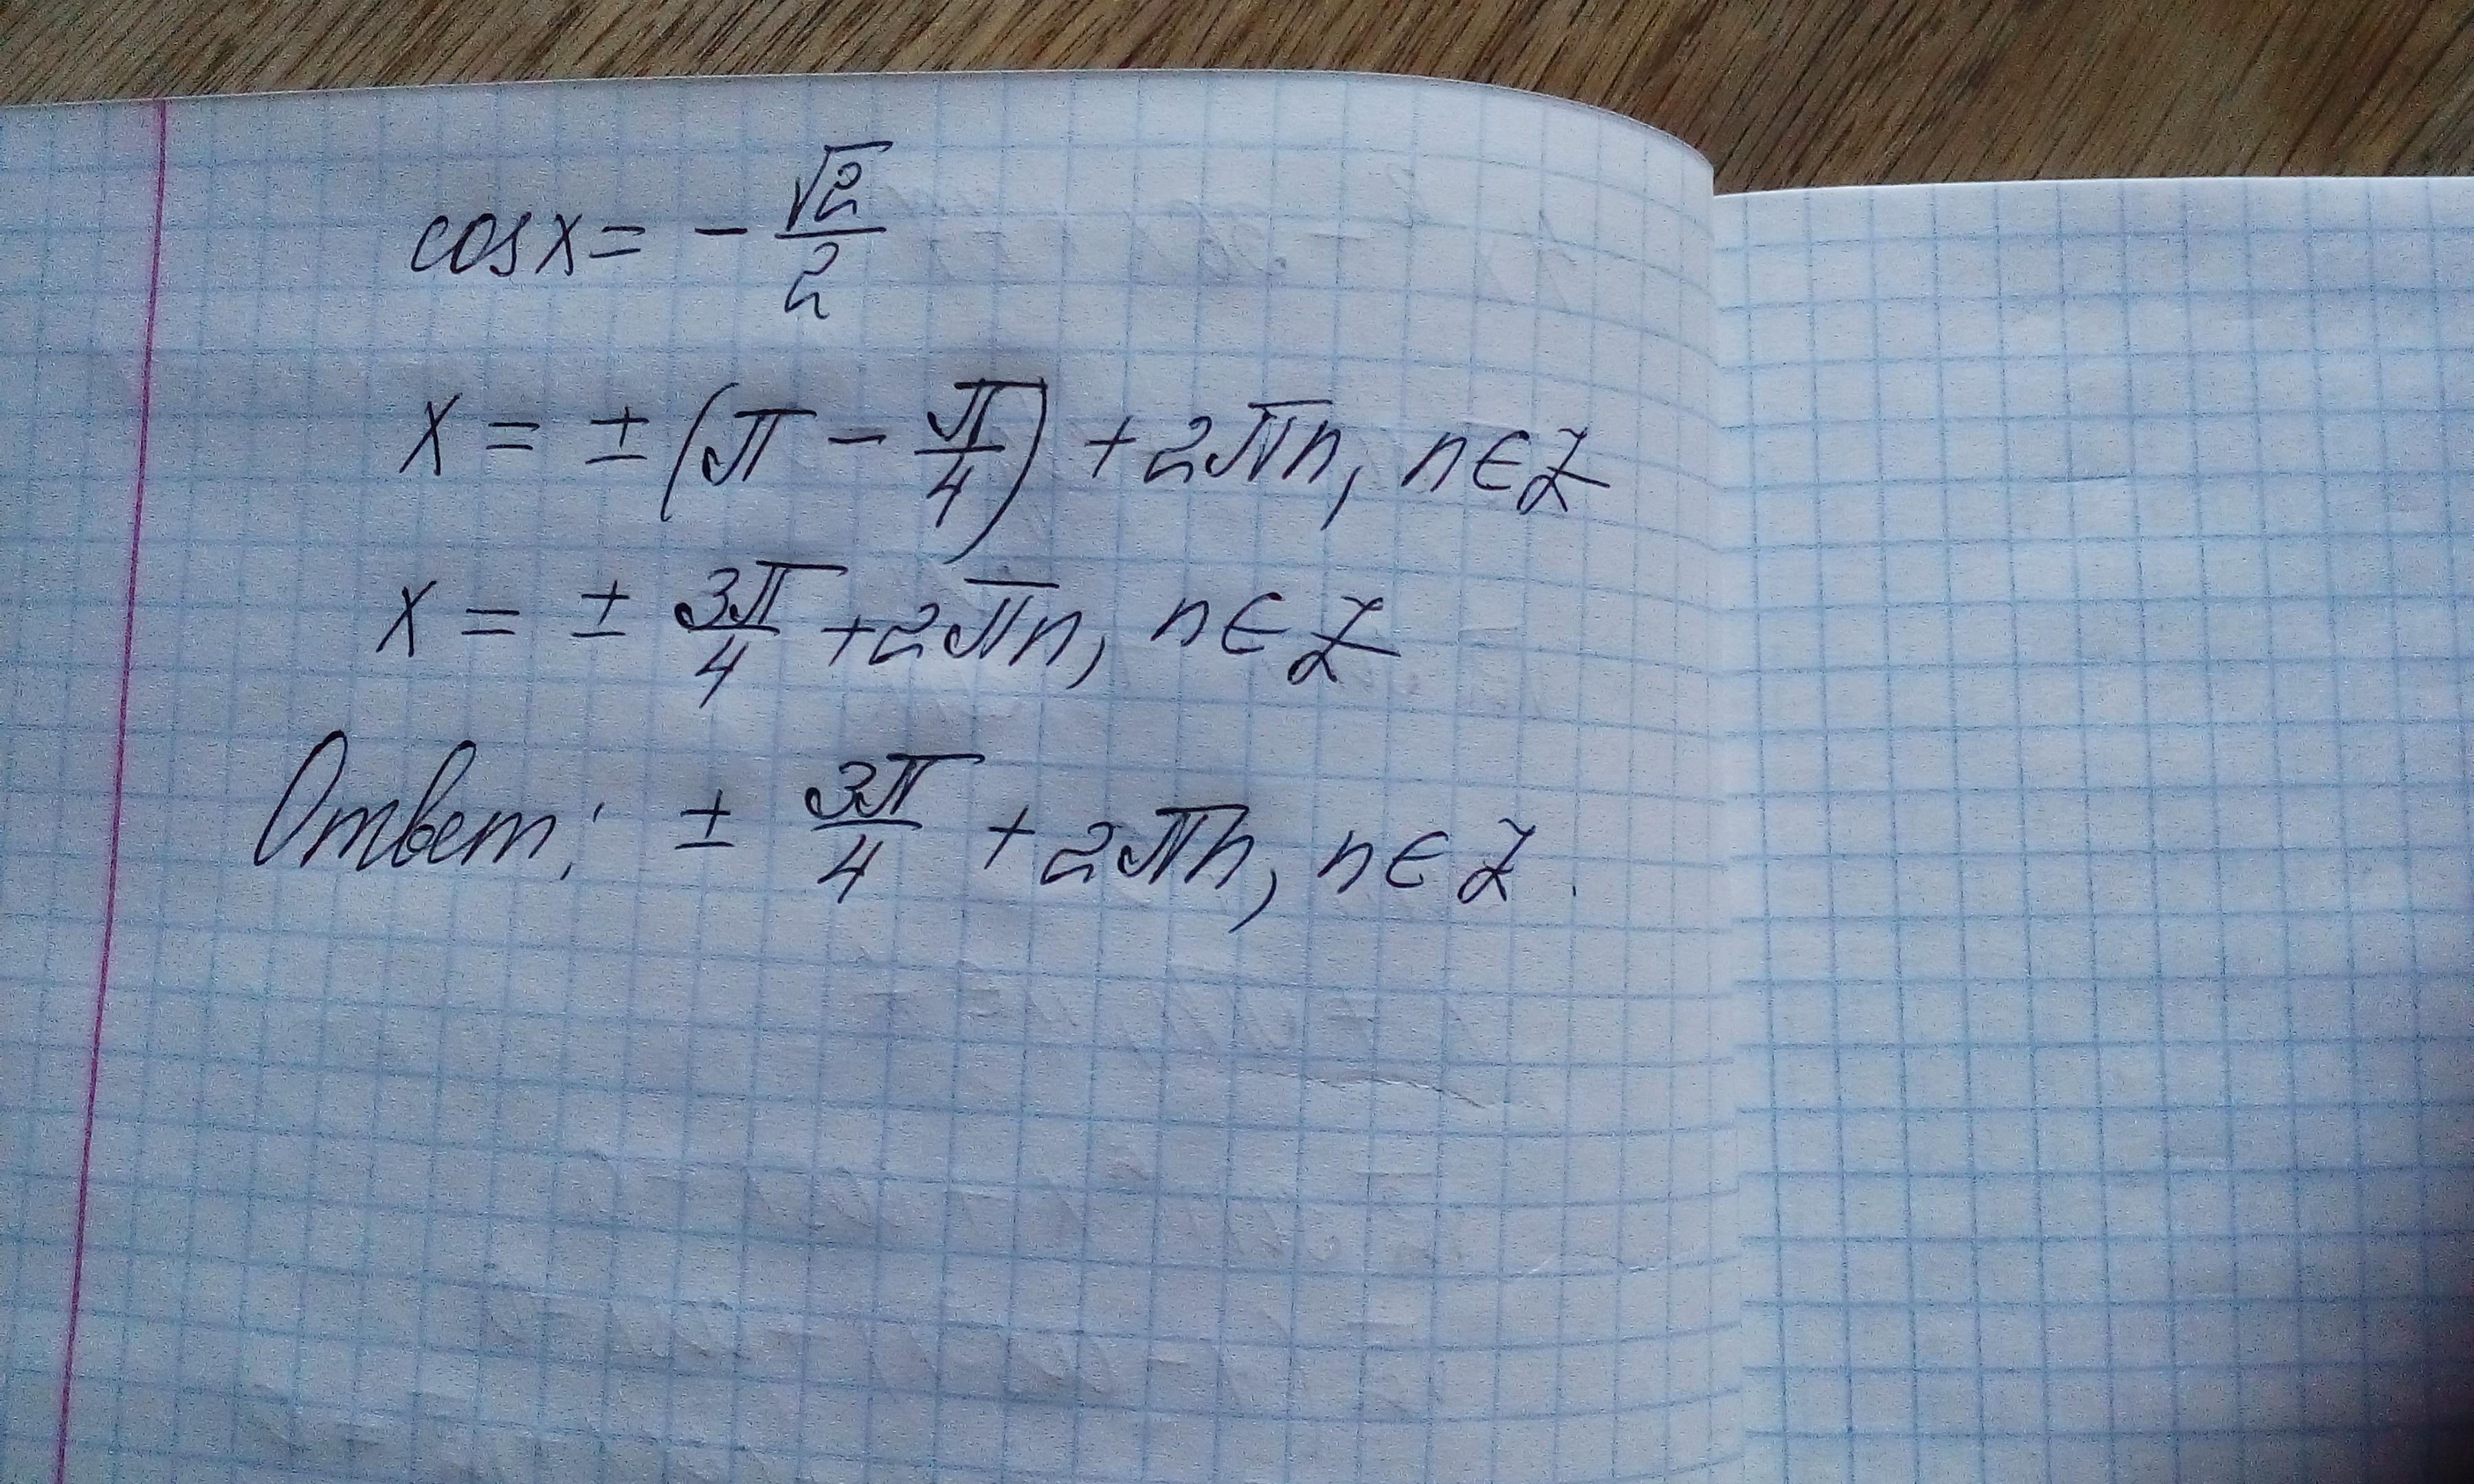 cosx = - √2/2
x = ± (π - π/4) + 2πn, n∈Z
x = ± 3π/4 + 2πn, n∈Z
Ответ: ± 3π/4 + 2πn, n∈Z.